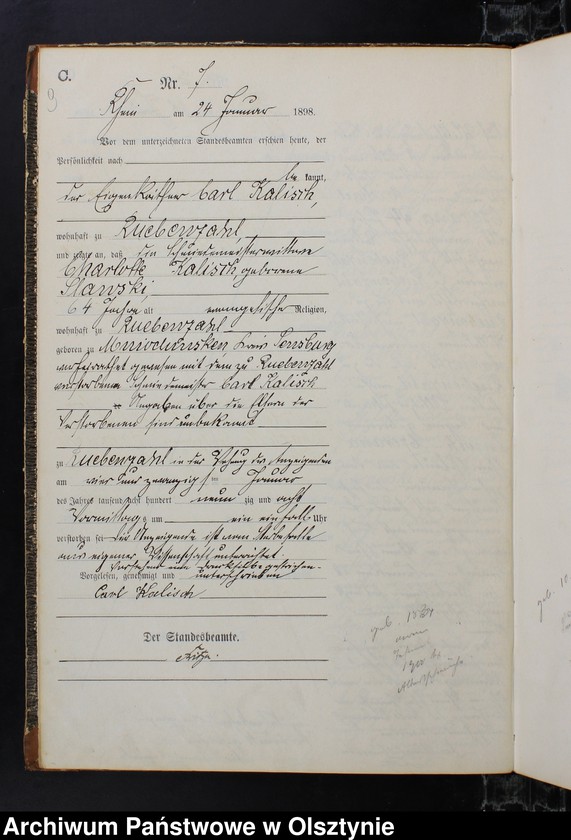 C.
Nr. 7.
9
Rhein am 24 Januar 1898.
Vor dem unterzeichneten Standesbeamten erschien heute, der
Persönlichkeit nach
be kannt,
der Eigenkäthner Carl Kalisch,
wohnhaft zu Ruebenzahl,
und zeigte an, daß die Schmiedemeisterwittwe
Charlotte Kalisch, geborene
Slawski,
64 Jahre alt evangelischer Religion,
wohnhaft zu Ruebenzahl
geboren zu Kreis Sensburg
verheirathet gewesen mit dem zu Ruebenzahl
verstorbenen Schmiedemeister Carl Kalisch
Angaben über die Eltern der
Verstorbenen sind unbekannt
zu Ruebenzahl in der Wohnung des Anzeigenden
am vier und zwanzigsten Januar
des Jahres tausend acht hundert neun zig und acht
Vormittags um ein einhalb Uhr
verstorben sei. Der Anzeigende ist vom Sterbefalle
aus eigener Wissenschaft unterrichtet.
Vorstehend eine Druckstelle gestrichen.
Vorgelesen, genehmigt und unterschrieben
Carl Kalisch
Der Standesbeamte.
geb.
1900
geb. 10
Archiwum Państwowe w Olsztynie